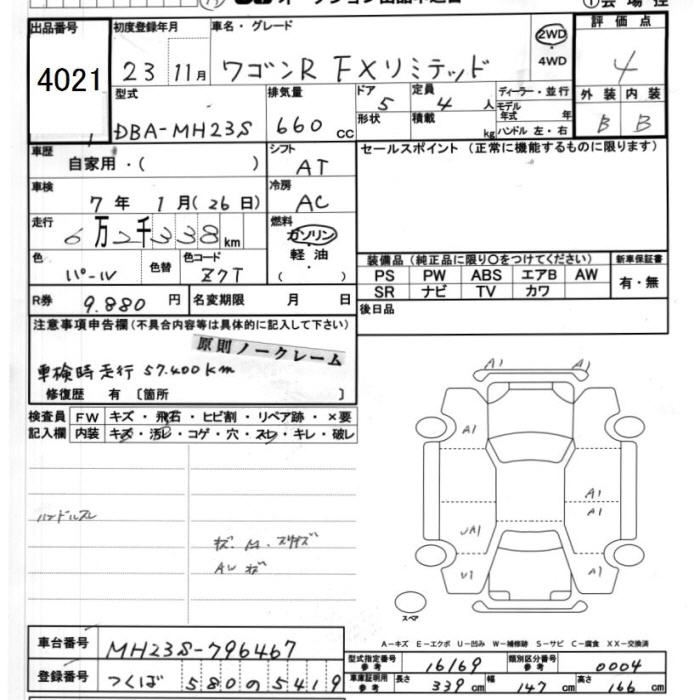 出品番号 4021
初度登録年月 23 11月
車名・グレード ワゴンR FXリミテッド
2WD
・
4WD
評価点 4
外装 B 内装 B
型式 DBA-MH23S
排気量 660 cc
ドア 5
形状
定員 4 人
積載 kg
ディーラー・並行
モデル年式 年
ハンドル 左・右
車歴 自家用・( )
シフト AT
セールスポイント (正常に機能するものに限ります)
車検 7年 1月(26日)
冷房 AC
走行 6万2千338km
燃料 ガソリン
・
軽油
( )
色 パール 色替
色コード Z7T
装備品 (純正品に限り○をつけてください)
新車保証書
PS PW ABS エアB AW
有・無
SR ナビ TV カワ
R券 9.880 円
名変期限 月 日
後日品
注意事項申告欄(不具合内容等は具体的に記入して下さい)
原則ノークレーム
車検時走行 57.400km
修復歴 有 〔箇所 〕
検査員記入欄
FW キズ・飛石・ヒビ割・リペア跡・×要
内装 キズ・汚レ・コゲ・穴・スレ・キレ・破レ
ハンドルスレ
AW キズ
A1 A1
A1
A1
A1
UA1
U1 A1
スペア
A-キズ E-エクボ U-凹み W-補修跡 S-サビ C-腐食 XX-交換済
車台番号 MH23S-796467
登録番号 つくば 580 の 5419
型式指定番号 参考 16169
類別区分番号 参考 0004
車庫証明用 参考 長さ 339 cm 幅 147 cm 高さ 166 cm